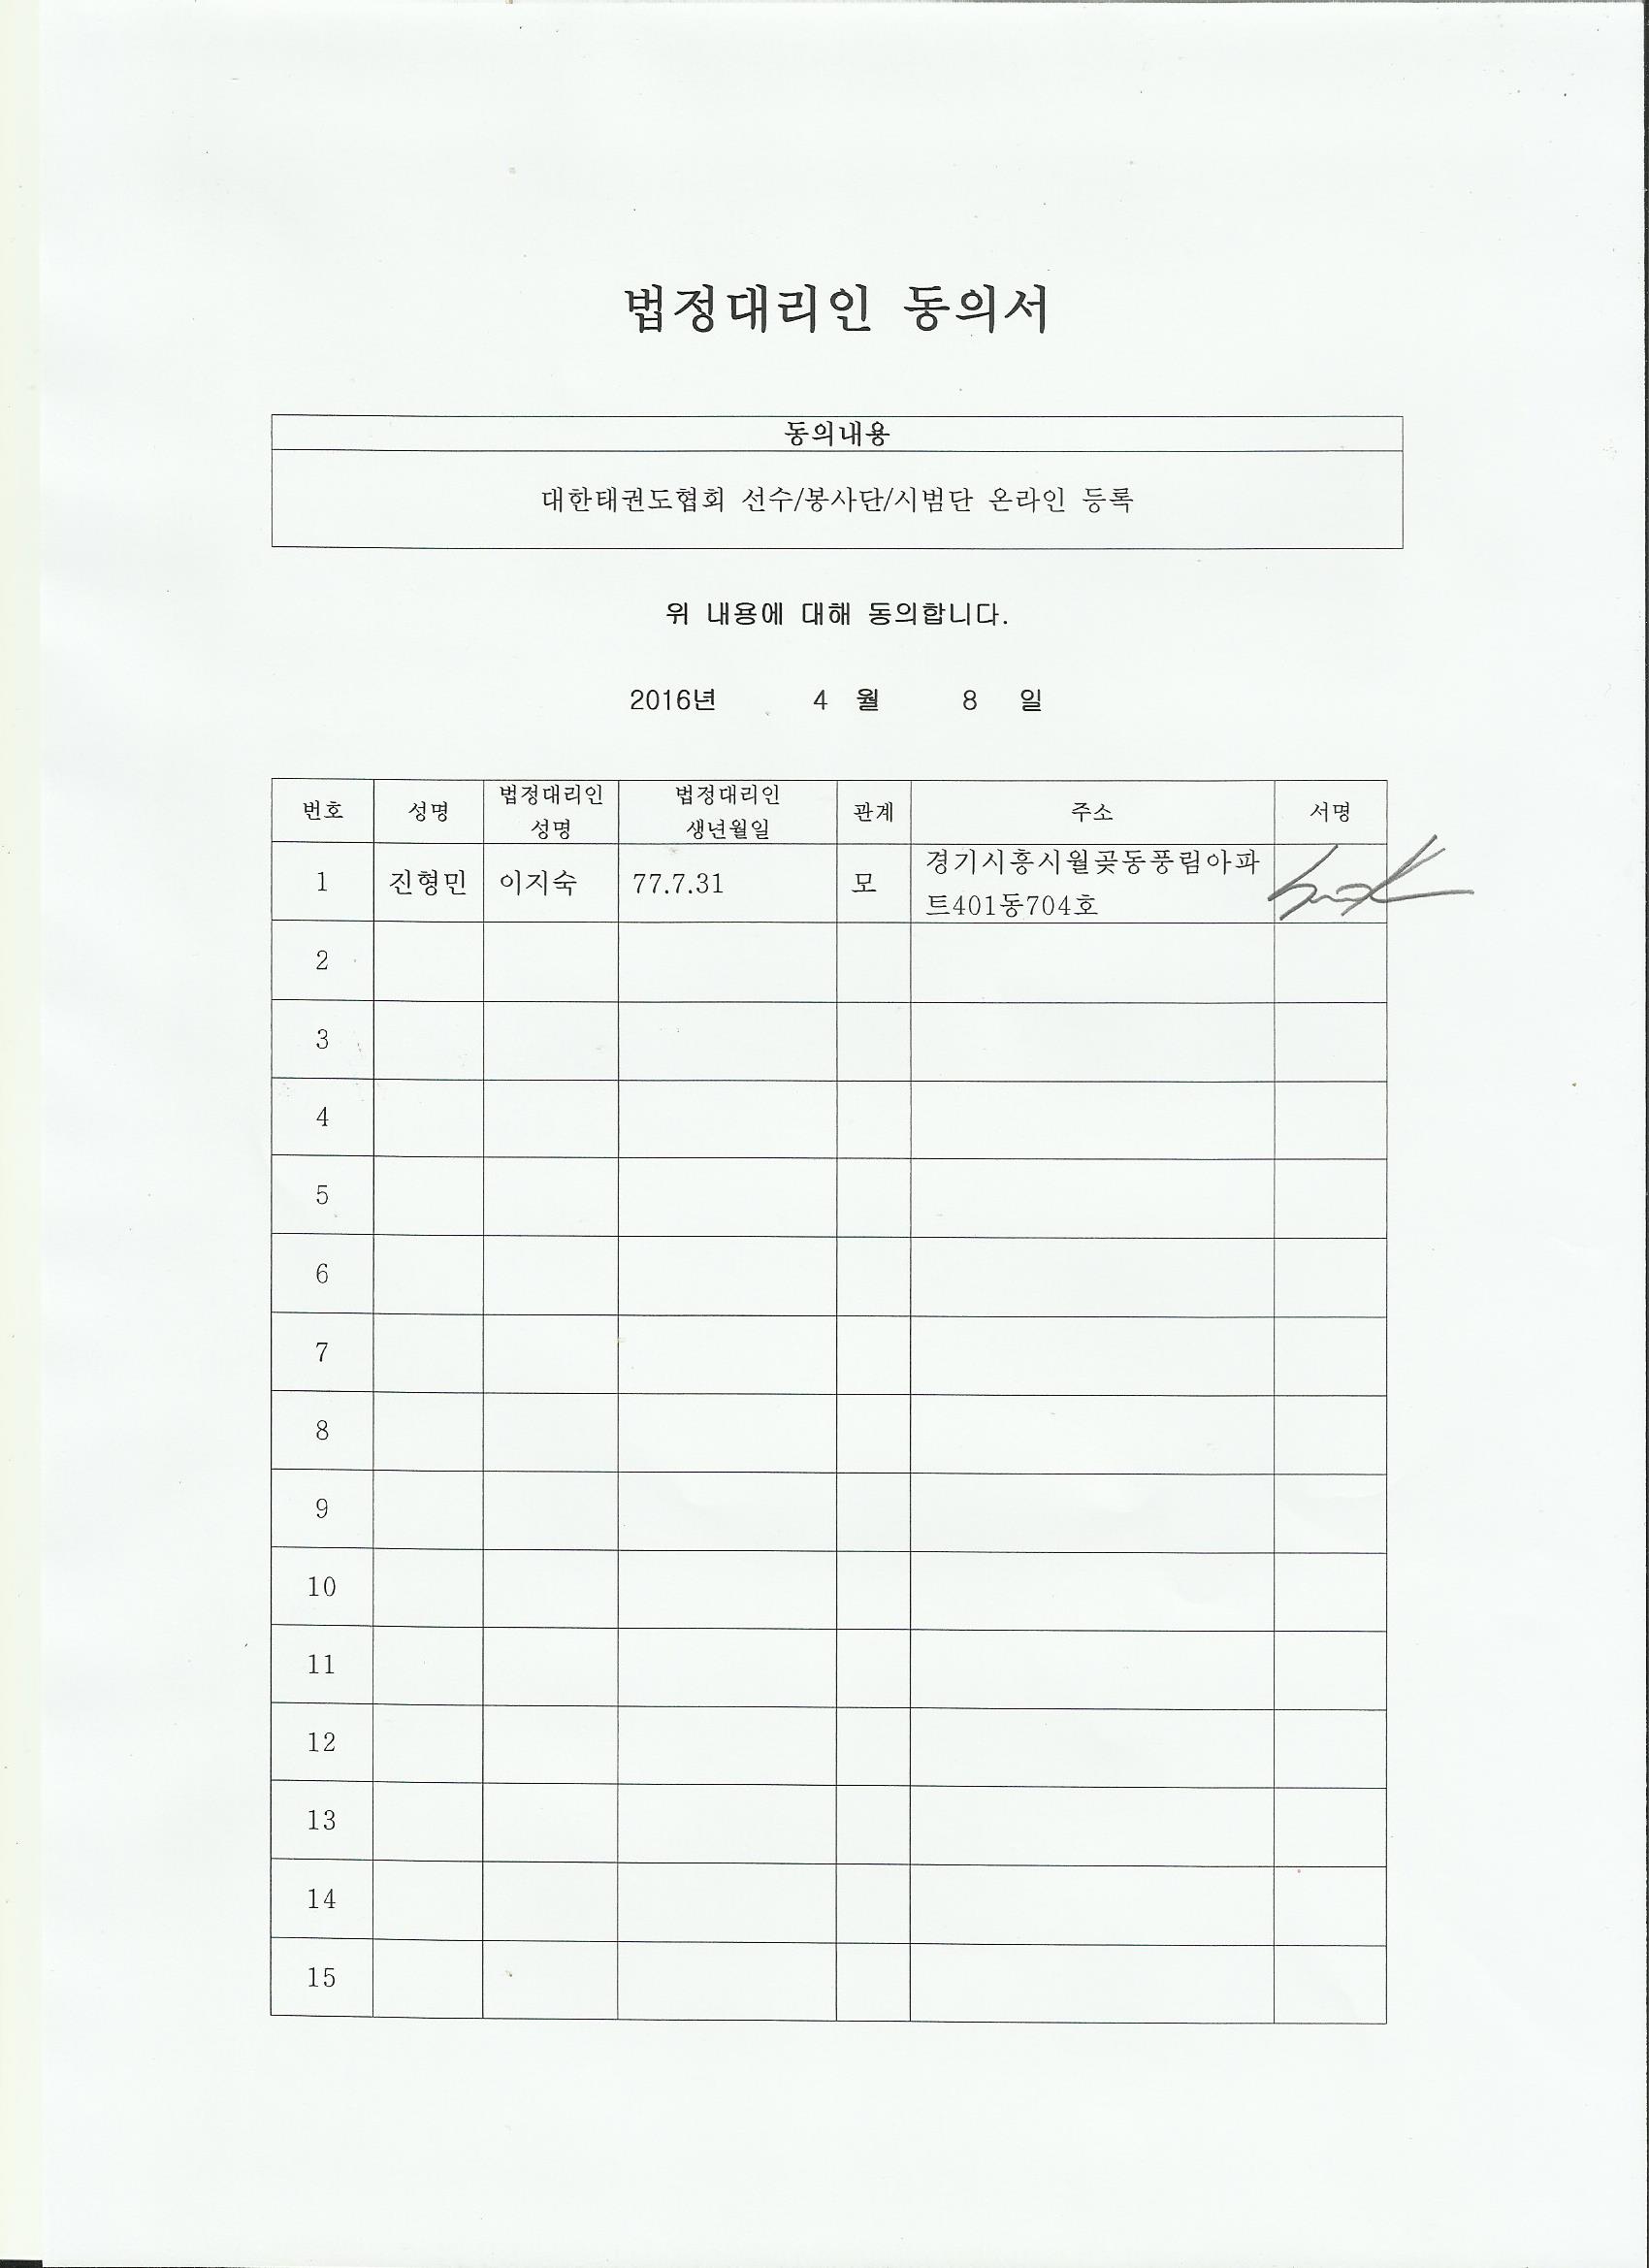 법정대리인 동의서
동의내용
대한태권도협회 선수/봉사단/시범단 온라인 등록
위 내용에 대해 동의합니다.
2016년 4 월 8 일
번호 성명 법정대리인 성명 법정대리인 생년월일 관계 주소 서명
1 진형민 이지숙 77.7.31 모 경기시흥시월곶동풍림아파
트401동704호
2
3
4
5
6
7
8
9
10
11
12
13
14
15